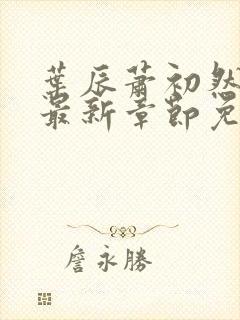 葉辰蕭初然
最新章節免
詹永勝